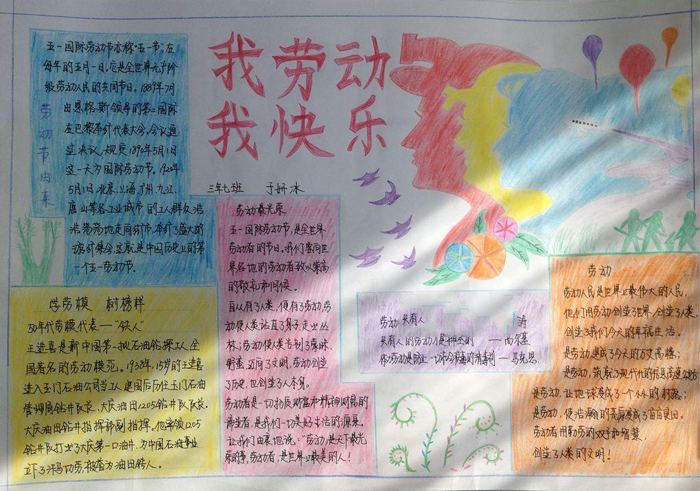 我劳动
我快乐
三年七班 于妍冰
劳动节由来
五一国际劳动节亦称"五一节",在
每年的五月一日。它是全世界无产阶
级劳动人民的共同节日。1889年7月
由恩格斯领导的第二国际
在巴黎举行代表大会,会议通
过决议,规定1890年5月1日
这一天为国际劳动节。1920年
5月1日,北京、上海、广州、九江、
唐山等各工业城市的工人群众浩
浩荡荡地走向街市,举行了盛大的
游行集会,这就是中国历史上的第
一个五一劳动节。
学劳模 树榜样
50年代劳模代表——"铁人"
王进喜是新中国第一批石油钻探工人,全
国著名的劳动模范。1938年,15岁的王进喜
进入玉门石油公司当工人,建国后历任玉门石油
管理局钻井队长、大庆油田1205钻井队队长、
大庆油田钻井指挥部副指挥。他率领1205
钻井队打出了大庆第一口油井,为中国石油事业
立下了汗马功劳,被誉为油田铁人。
劳动最光荣
五一国际劳动节,是全世界
劳动者的节日。我们要向世
界各地的劳动者致以崇高
的敬意和问候。
自从有了人类,便有了劳动,劳
动使人类站直了身子走出丛
林;劳动使人类告别了愚昧
野蛮,迈向了文明,劳动创造
了历史,也创造了人本身。
劳动者是一切物质财富和精神财富的
缔造者,是我们一切美好生活的源泉。
让我们由衷地说:"劳动是天下最光
荣的事,劳动者,是世界上最美的人!
劳动
只有人的劳动才是神圣的 ——高尔基
体力劳动是防止一切社会病毒的 ——马克思
劳动
劳动人民是世界上最伟大的人民,
他们用劳动创造了世界,创造了人类,
创造了我们今天的幸福生活。
是劳动,建成了今天的万丈高楼;
是劳动,筑就了现代化的信息高速公路
是劳动,让地球变成了一个小小的村落;
是劳动,使浩瀚的荒原变成了亩亩良田。
劳动者用勤劳的双手和智慧,
创造了人类的文明!